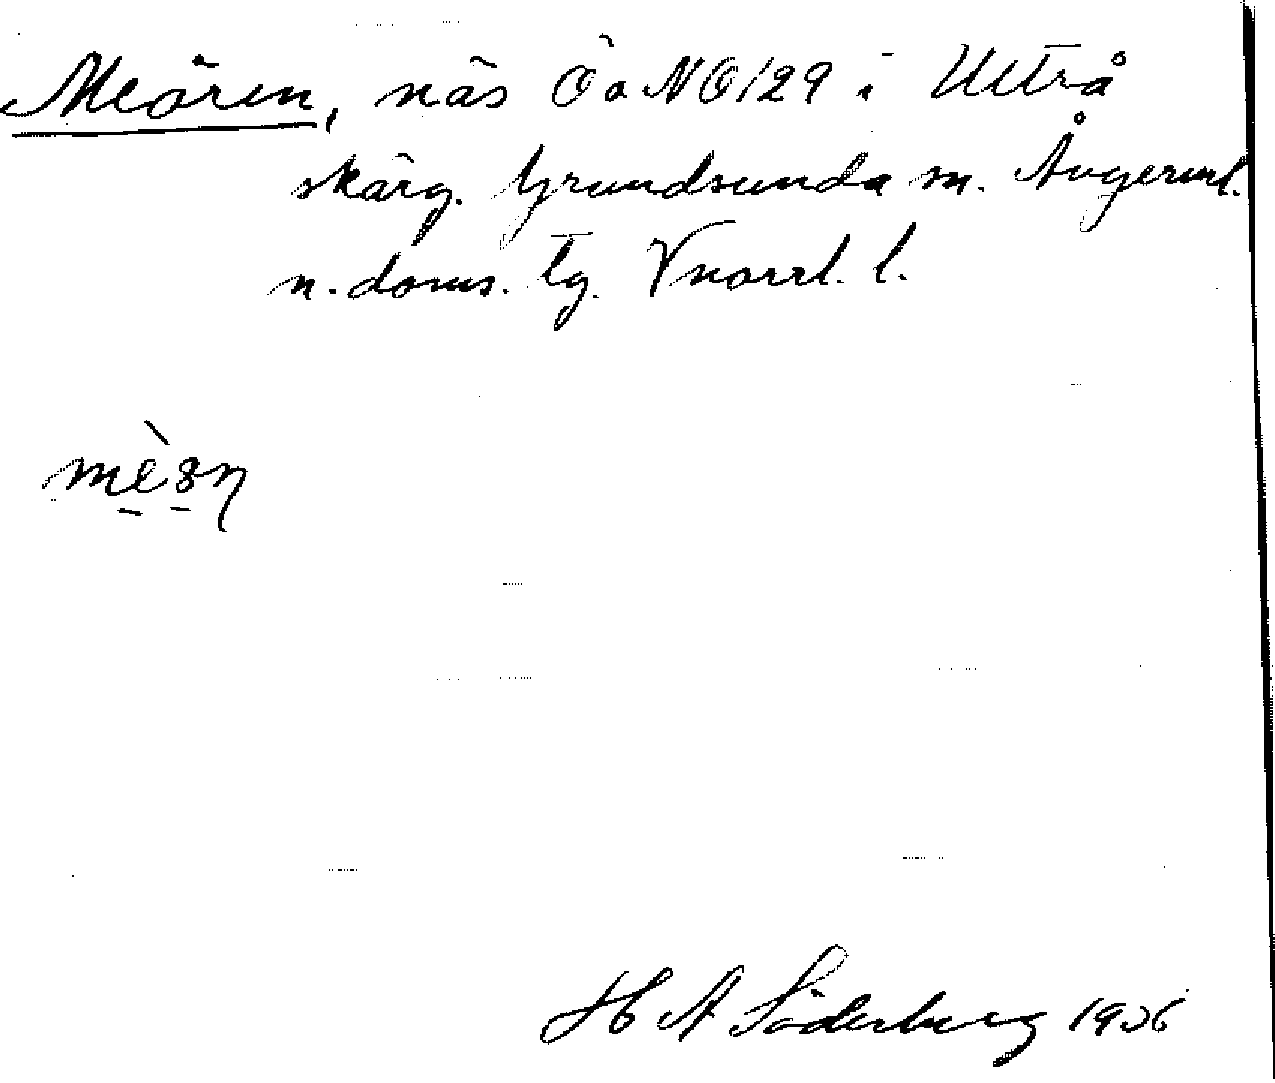 Meören, näs Öa NO/29 i Ulvrå
skärg. Grundsunda sn. Ångerml.
n. doms. tg. Vnorrl. l.
H A Söderberg 1936